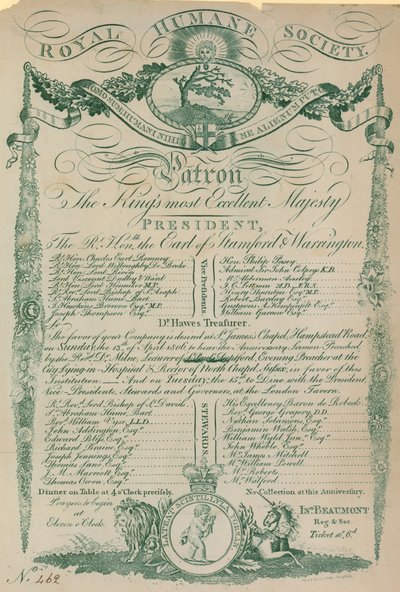 ROYAL HUMANE SOCIETY.
HOMO SUM HUMANI NIHIL ME ALIENUM PUTO
Patron
The King's most Excellent Majesty
PRESIDENT,
The Rt. Honble. the Earl of Stamford & Warrington.
Vice Presidents
Rt. Hon. Charles Earl Romney
Rt. Hon. Lord Willoughby de Broke
Rt. Hon. Lord Rivers
Lord Viscount Dudley & Ward
Rt. Hon. Lord Henniker M.P.
Rt. Rev. Lord Bishop of St. Asaph
Sr. Abraham Hume Bart.
I. Hawkins Browne Esqr. M.P.
Thompson Esqr.
Hon. Philip Pusey
Admiral Sir John Colpoys K.B.
Mr. Alderman Ansley
J. C. Lettsom M.D. F.R.S.
Henry Thornton Esqr. M.P.
Robert Barclay Esqr.
Gustavus A. Kingkight Esqr.
William Garrow Esqr.
Dr. Hawes Treasurer.
Sir
The favor of your Company is desired at St. James's Chapel, Hampstead Road,
on Sunday, the 13th of April 1806, to hear the Anniversary Sermon Preached
by the Revd. Dr. Milne, Lecturer of Deptford, Evening Preacher at the
City Lying-in Hospital & Rector of North Chapel, Sussex, in favor of this
Institution And on Tuesday, the 15th, to Dine with the President
Vice-Presidents, Stewards and Governors, at the London Tavern
STEWARDS.
Rt. Revd. Lord Bishop of St. Davids
Sr. Abraham Hume, Bart.
Revd. William Vyse, L.L.D.
John Addington, Esqr.
Edward Bliss, Esqr.
Richard Browne Esqr.
Joseph Jennings Esqr.
Thomas Lane, Esqr.
J. M. Marriott Esqr.
Thomas Owen, Esqr.
His Excellency Baron de Robeck.
Revd. George Gregory, D.D.
Nathan Solomons, Esqr.
Benjamin Walsh, Esqr.
William Wyld Junr. Esqr.
John White Esqr.
Mr. James Mitchell
Mr. William Powell
Mr. Roberts
Mr. Walford
Dinner on Table at 4 o'Clock precisely.
No Collection at this Anniversary.
Prayers to begin
at
Eleven o'Clock.
LATEAT SCINTILLVLA FORSAN
Jno. BEAUMONT
Reg & Sec.
Ticket 10s, 6d
No. 462